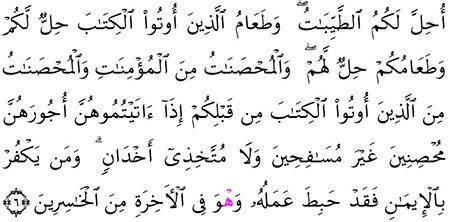 أُحِلَّ لَكُمُ ٱلطَّيِّبَٰتُۖ وَطَعَامُ ٱلَّذِينَ أُوتُوا۟ ٱلْكِتَٰبَ حِلٌّ لَّكُمْ
وَطَعَامُكُمْ حِلٌّ لَّهُمْۖ وَٱلْمُحْصَنَٰتُ مِنَ ٱلْمُؤْمِنَٰتِ وَٱلْمُحْصَنَٰتُ
مِنَ ٱلَّذِينَ أُوتُوا۟ ٱلْكِتَٰبَ مِن قَبْلِكُمْ إِذَآ ءَاتَيْتُمُوهُنَّ أُجُورَهُنَّ
مُحْصِنِينَ غَيْرَ مُسَٰفِحِينَ وَلَا مُتَّخِذِىٓ أَخْدَانٍۗ وَمَن يَكْفُرْ
بِٱلْإِيمَٰنِ فَقَدْ حَبِطَ عَمَلُهُۥ وَهْوَ فِى ٱلْأَخِرَةِ مِنَ ٱلْخَٰسِرِينَ ۝٦